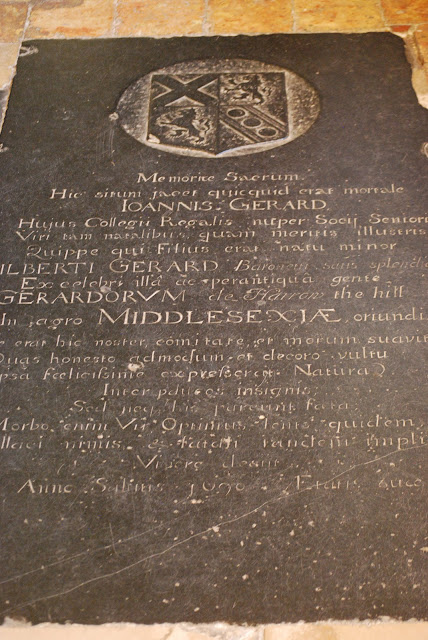 Memoriæ Sacrum.
Hic situm jacet quicquid erat mortale
IOANNIS GERARD
Hujus Collegii Regalis nuper Socij Seniori
Viri tam natalibus quam meritis illustris
Quippe qui Filius erat natu minor
ILBERTI GERARD Baronetti satis splendi
Ex celebri illa ac perantiqua gente
GERARDORVM de Harrow the hill
In agro MIDDLESEXIÆ oriundi
erat hic noster comitate et morum suavit
Quas honesto admodum et decoro vultu
psa fœlicissime expresserat Natura
Inter plures insignis
Sed neq his parcunt fata
Morbo enim Vir Optimus
nimis
Vivere desiit
Anno Salutis 1690 Ætatis suæ